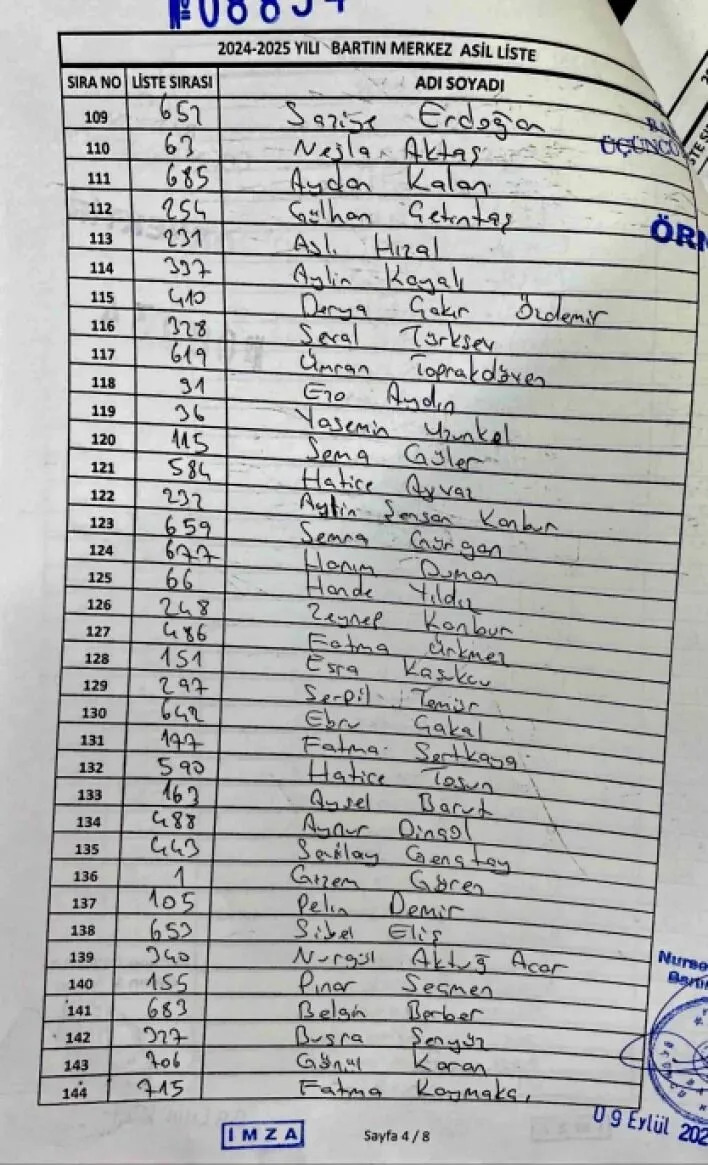 №08854
2024-2025 YILI BARTIN MERKEZ ASİL LİSTE
SIRA NO LİSTE SIRASI ADI SOYADI
109 657 Saziye Erdoğan
110 63 Neşla Aktaş
111 685 Aydan Kalan
112 254 Gülhan Çetintaş
113 231 Aslı Hızal
114 397 Aylin Kayalı
115 410 Derya Çakır Özdemir
116 328 Seval Türksev
117 619 Ümran Toprakdöven
118 91 Ezo Aydın
119 36 Yasemin Uzunkol
120 115 Sema Güler
121 584 Hatice Ayvaz
122 232 Aylin Şensan Kanbur
123 659 Semra Gürgan
124 677 Hanım Duman
125 66 Hande Yıldız
126 248 Zeynep Kanbur
127 486 Fatma Ürkmez
128 151 Esra Kaşıkcı
129 297 Serpil Temür
130 642 Ebru Çakal
131 177 Fatma Sertkaya
132 590 Hatice Tosun
133 163 Aysel Barut
134 488 Aynur Dingöl
135 443 Gençtay
136 1 Gizem Gören
137 105 Pelin Demir
138 653 Sibel Eliş
139 340 Nurgül Aktuğ Acar
140 155 Pınar Seçmen
141 683 Belgin Berber
142 327 Buşra Şenyüz
143 706 Gönül Karan
144 715 Fatma Kaymakçı
ÜÇÜNCÜ
ÖRN
Nurse
Bartın
İMZA
Sayfa 4 / 8
09 Eylül 202